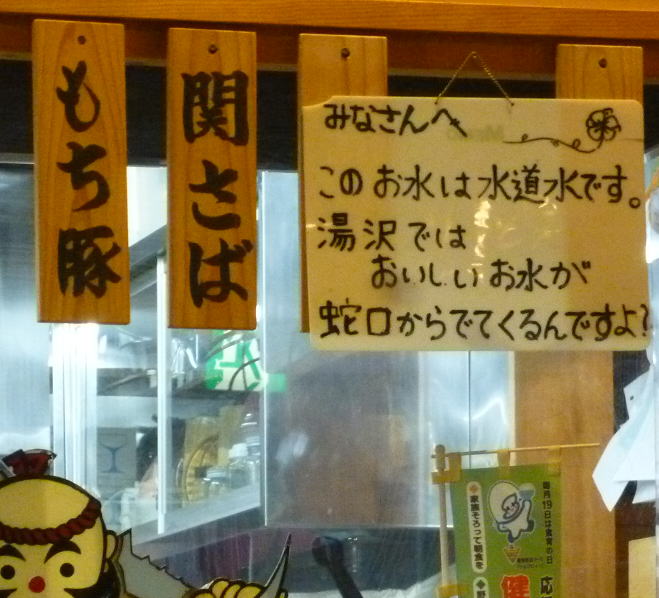 もち豚
関さば
みなさんへ
このお水は水道水です。
湯沢では
おいしいお水が
蛇口からでてくるんですよ?
毎月19日は食育の日
◆家族そろって朝食を